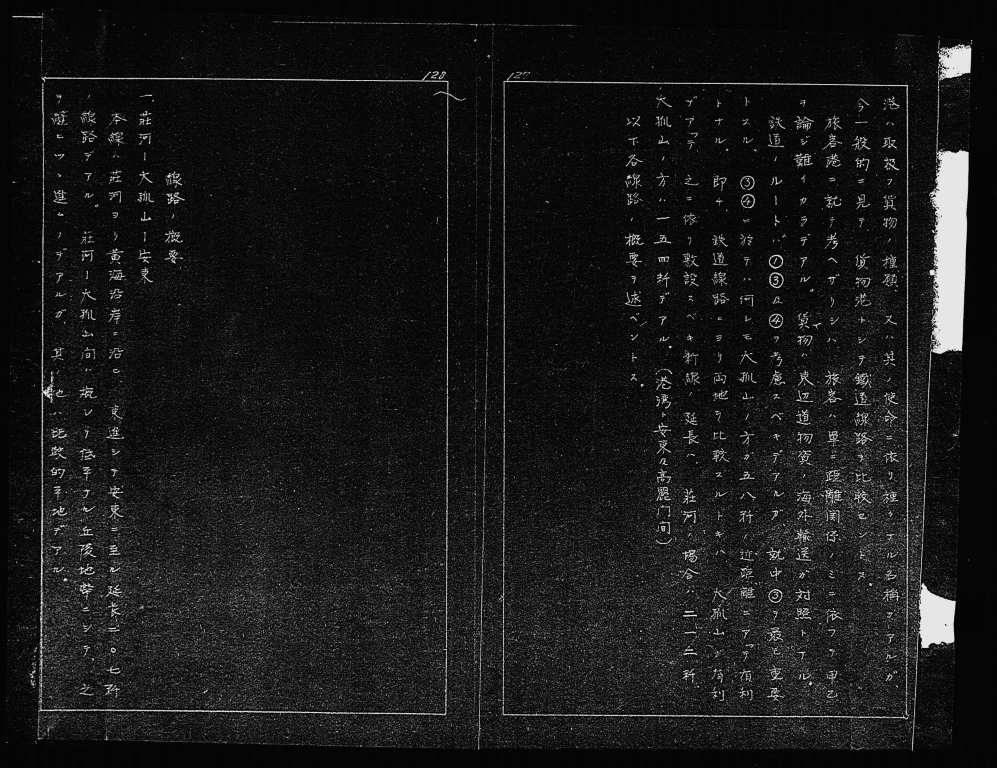 127
港ハ取扱フ貨物ノ種類、又ハ其ノ使命ニ依リ種々ナル名稱ヲアルガ、
今一般的ニ見テ、貨物港トシテ鐵道線路ヲ比較セントス。
旅客港ニ就テ考ヘザリシハ、旅客ハ單ニ距離関係ノミニ依ツテ甲乙
ヲ論ジ難イカラデアル。貨物ハ東辺道物資ノ海外輸送ガ対照トナル。
鉄道ノルートハ①③及④ヲ考慮スベキデアルガ、就中③ヲ最モ重要
トスル。③④ニ於テハ何レモ大孤山ノ方ガ五八粁ノ近距離ニアツテ有利
トナル。即チ、鉄道線路ニヨリ両地ヲ比較スルトキハ、大孤山ガ有利
デアツテ、之ニ依リ敷設スベキ新線ノ延長ハ、荘河ノ場合ハ二一二粁、
大孤山ノ方ハ一五四粁デアル。(港湾ト安東及高麗門間)
以下各線路ノ概要ヲ述ベントス。
128
線路ノ概要
一、荘河ー大孤山ー安東
本線ハ荘河ヨリ黄海沿岸ニ沿ヒ、東進シテ安東ニ至ル延長二〇七粁
ノ線路デアル。荘河ー大孤山間ハ概シテ低平ナル丘陵地帶ニシテ、之
ヲ縫ヒツヽ進ムノデアルガ、其ノ他ハ比較的平地デアル。